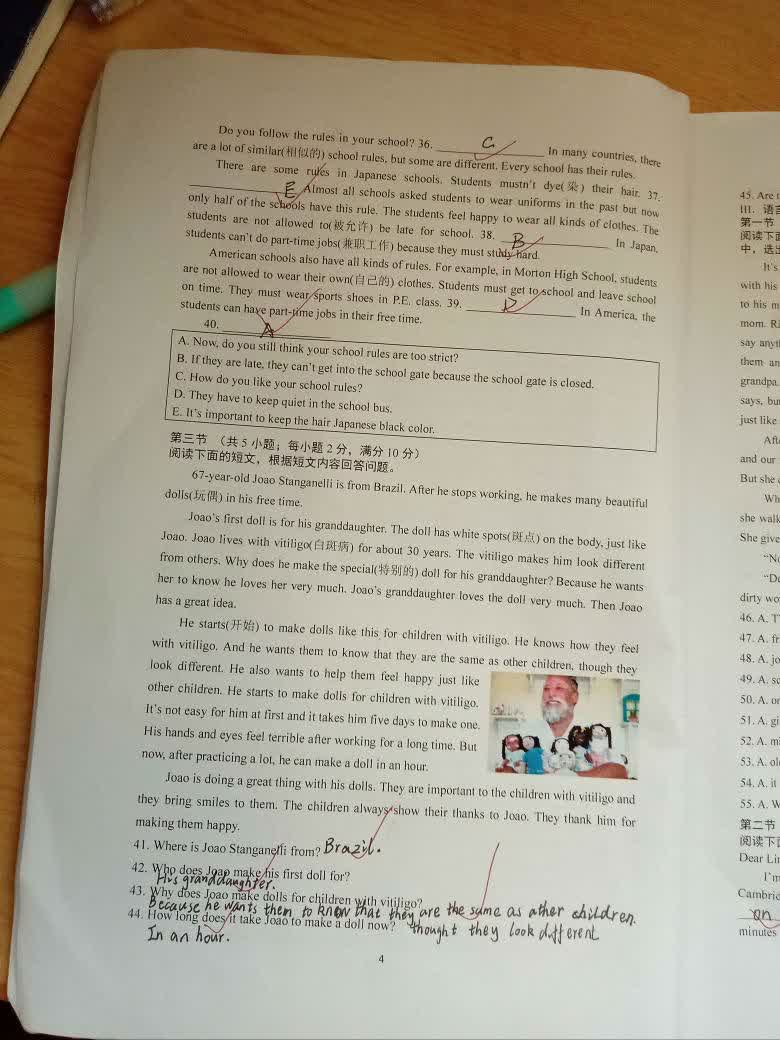 Do you follow the rules in your school? 36. C In many countries, there
are a lot of similar(相似的) school rules, but some are different. Every school has their rules.
There are some rules in Japanese schools. Students mustn't dye(染) their hair. 37.
E Almost all schools asked students to wear uniforms in the past but now
only half of the schools have this rule. The students feel happy to wear all kinds of clothes. The
students are not allowed to(被允许) be late for school. 38. B In Japan,
students can't do part-time jobs(兼职工作) because they must study hard.
American schools also have all kinds of rules. For example, in Morton High School, students
are not allowed to wear their own(自己的) clothes. Students must get to school and leave school
on time. They must wear sports shoes in P.E. class. 39. D In America, the
students can have part-time jobs in their free time.
40. A
A. Now, do you still think your school rules are too strict?
B. If they are late, they can't get into the school gate because the school gate is closed.
C. How do you like your school rules?
D. They have to keep quiet in the school bus.
E. It's important to keep the hair Japanese black color.
第三节 (共 5 小题; 每小题 2 分, 满分 10 分)
阅读下面的短文, 根据短文内容回答问题。
67-year-old Joao Stanganelli is from Brazil. After he stops working, he makes many beautiful
dolls(玩偶) in his free time.
Joao's first doll is for his granddaughter. The doll has white spots(斑点) on the body, just like
Joao. Joao lives with vitiligo(白斑病) for about 30 years. The vitiligo makes him look different
from others. Why does he make the special(特别的) doll for his granddaughter? Because he wants
her to know he loves her very much. Joao's granddaughter loves the doll very much. Then Joao
has a great idea.
He starts(开始) to make dolls like this for children with vitiligo. He knows how they feel
with vitiligo. And he wants them to know that they are the same as other children, though they
look different. He also wants to help them feel happy just like
other children. He starts to make dolls for children with vitiligo.
It's not easy for him at first and it takes him five days to make one.
His hands and eyes feel terrible after working for a long time. But
now, after practicing a lot, he can make a doll in an hour.
Joao is doing a great thing with his dolls. They are important to the children with vitiligo and
they bring smiles to them. The children always show their thanks to Joao. They thank him for
making them happy.
41. Where is Joao Stanganelli from? Brazil.
42. Who does Joao make his first doll for?
His granddaughter.
43. Why does Joao make dolls for children with vitiligo?
Because he wants them to know that they are the same as other children.
44. How long does it take Joao to make a doll now? thought they look different
In an hour.
4
45. Are
III. 语
第一节
阅读下面
中, 选出
It's
with his
to his m
mom. R
say anyt
them an
grandpa.
says, bu
just like
Aft
and our
But she
Wh
she walk
She give
"No
"De
dirty wo
46. A. T
47. A. fr
48. A. jo
49. A. sc
50. A. or
51. A. gi
52. A. mi
53. A. ol
54. A. it
55. A. W
第二节
阅读下
Dear Lin
I'm
Cambric
on
minutes